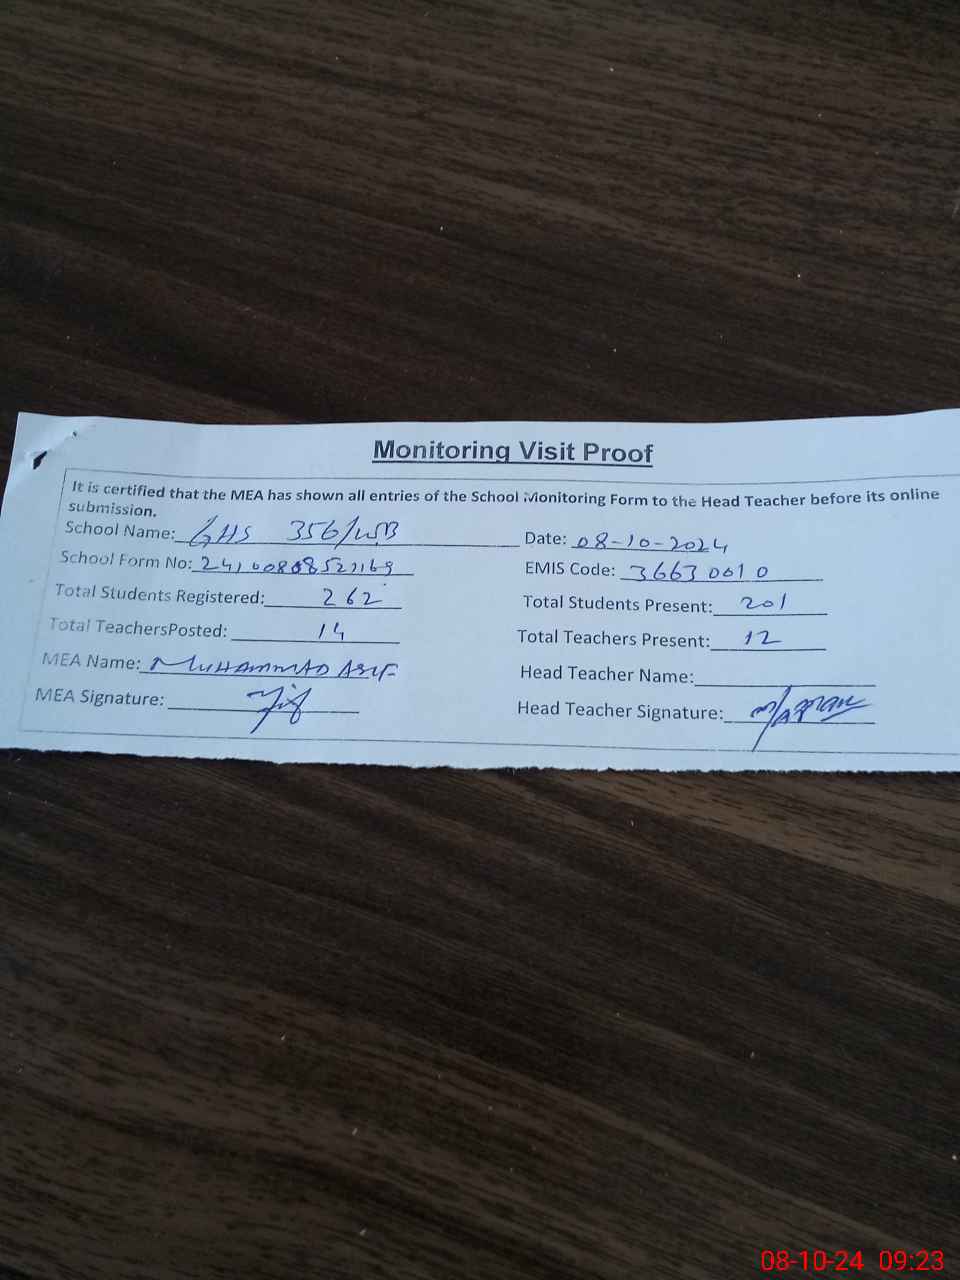 Monitoring Visit Proof
It is certified that the MEA has shown all entries of the School Monitoring Form to the Head Teacher before its online
submission.
School Name: GHS 356/WB Date: 08-10-2024
School Form No: EMIS Code: 36630010
Total Students Registered: 262 Total Students Present: 201
Total TeachersPosted: 14 Total Teachers Present: 12
MEA Name: MUHAMMAD ASIF Head Teacher Name:
MEA Signature: Head Teacher Signature:
08-10-24 09:23